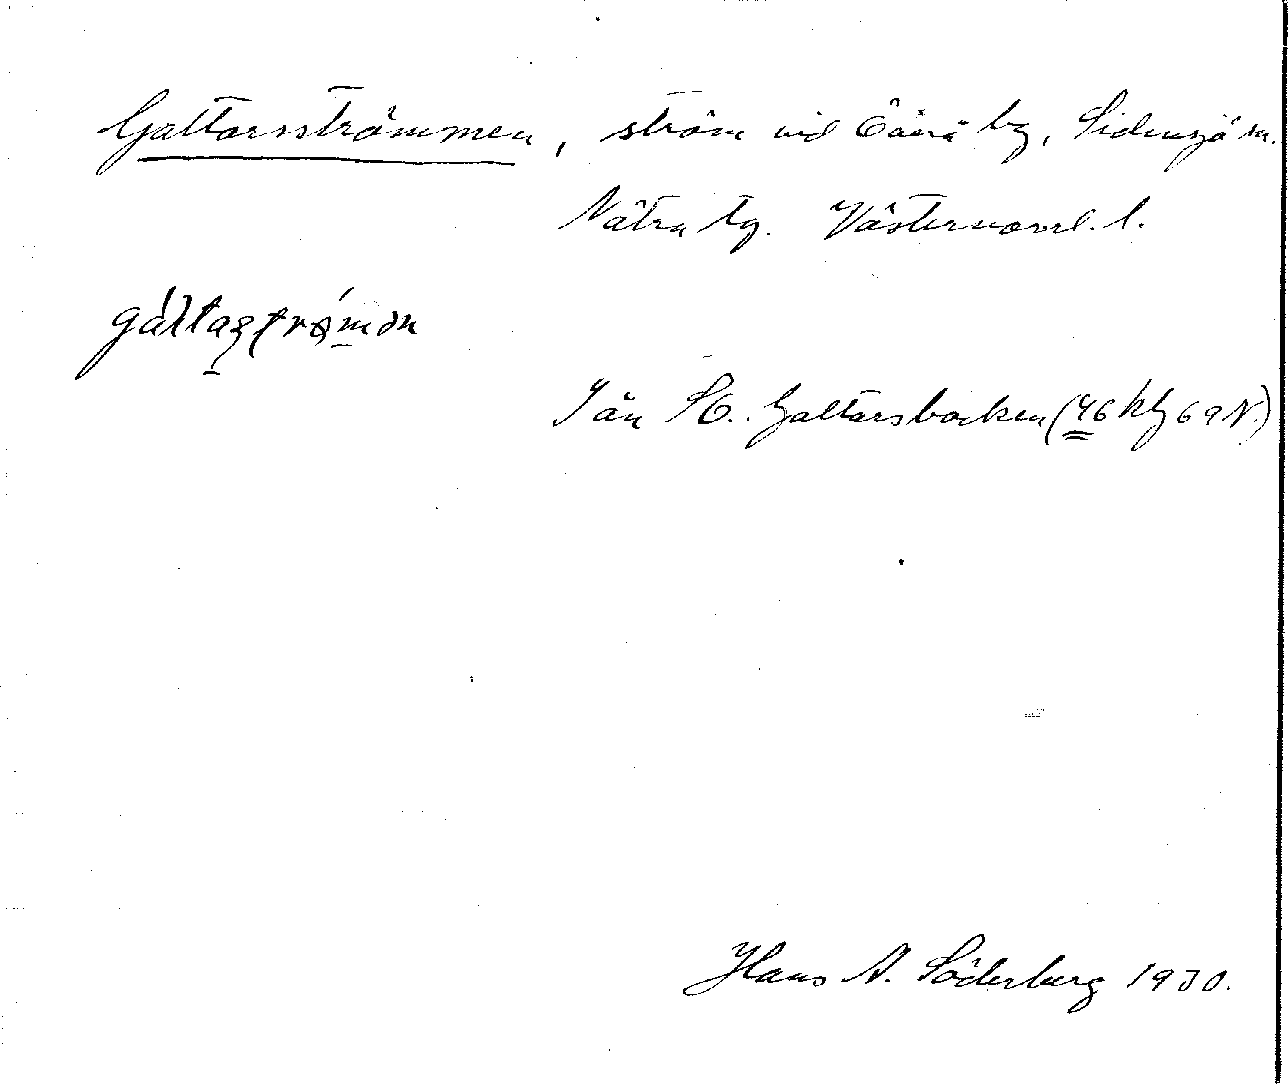 Galtarsströmmen, ström vid by, Sidensjö sn.
Nätra tg. Västernorrl. l.
galtaʂʈrömən
I ån St. Galtarsbäcken (46 kbg 69 N.)
Hans A. Söderberg 1930.